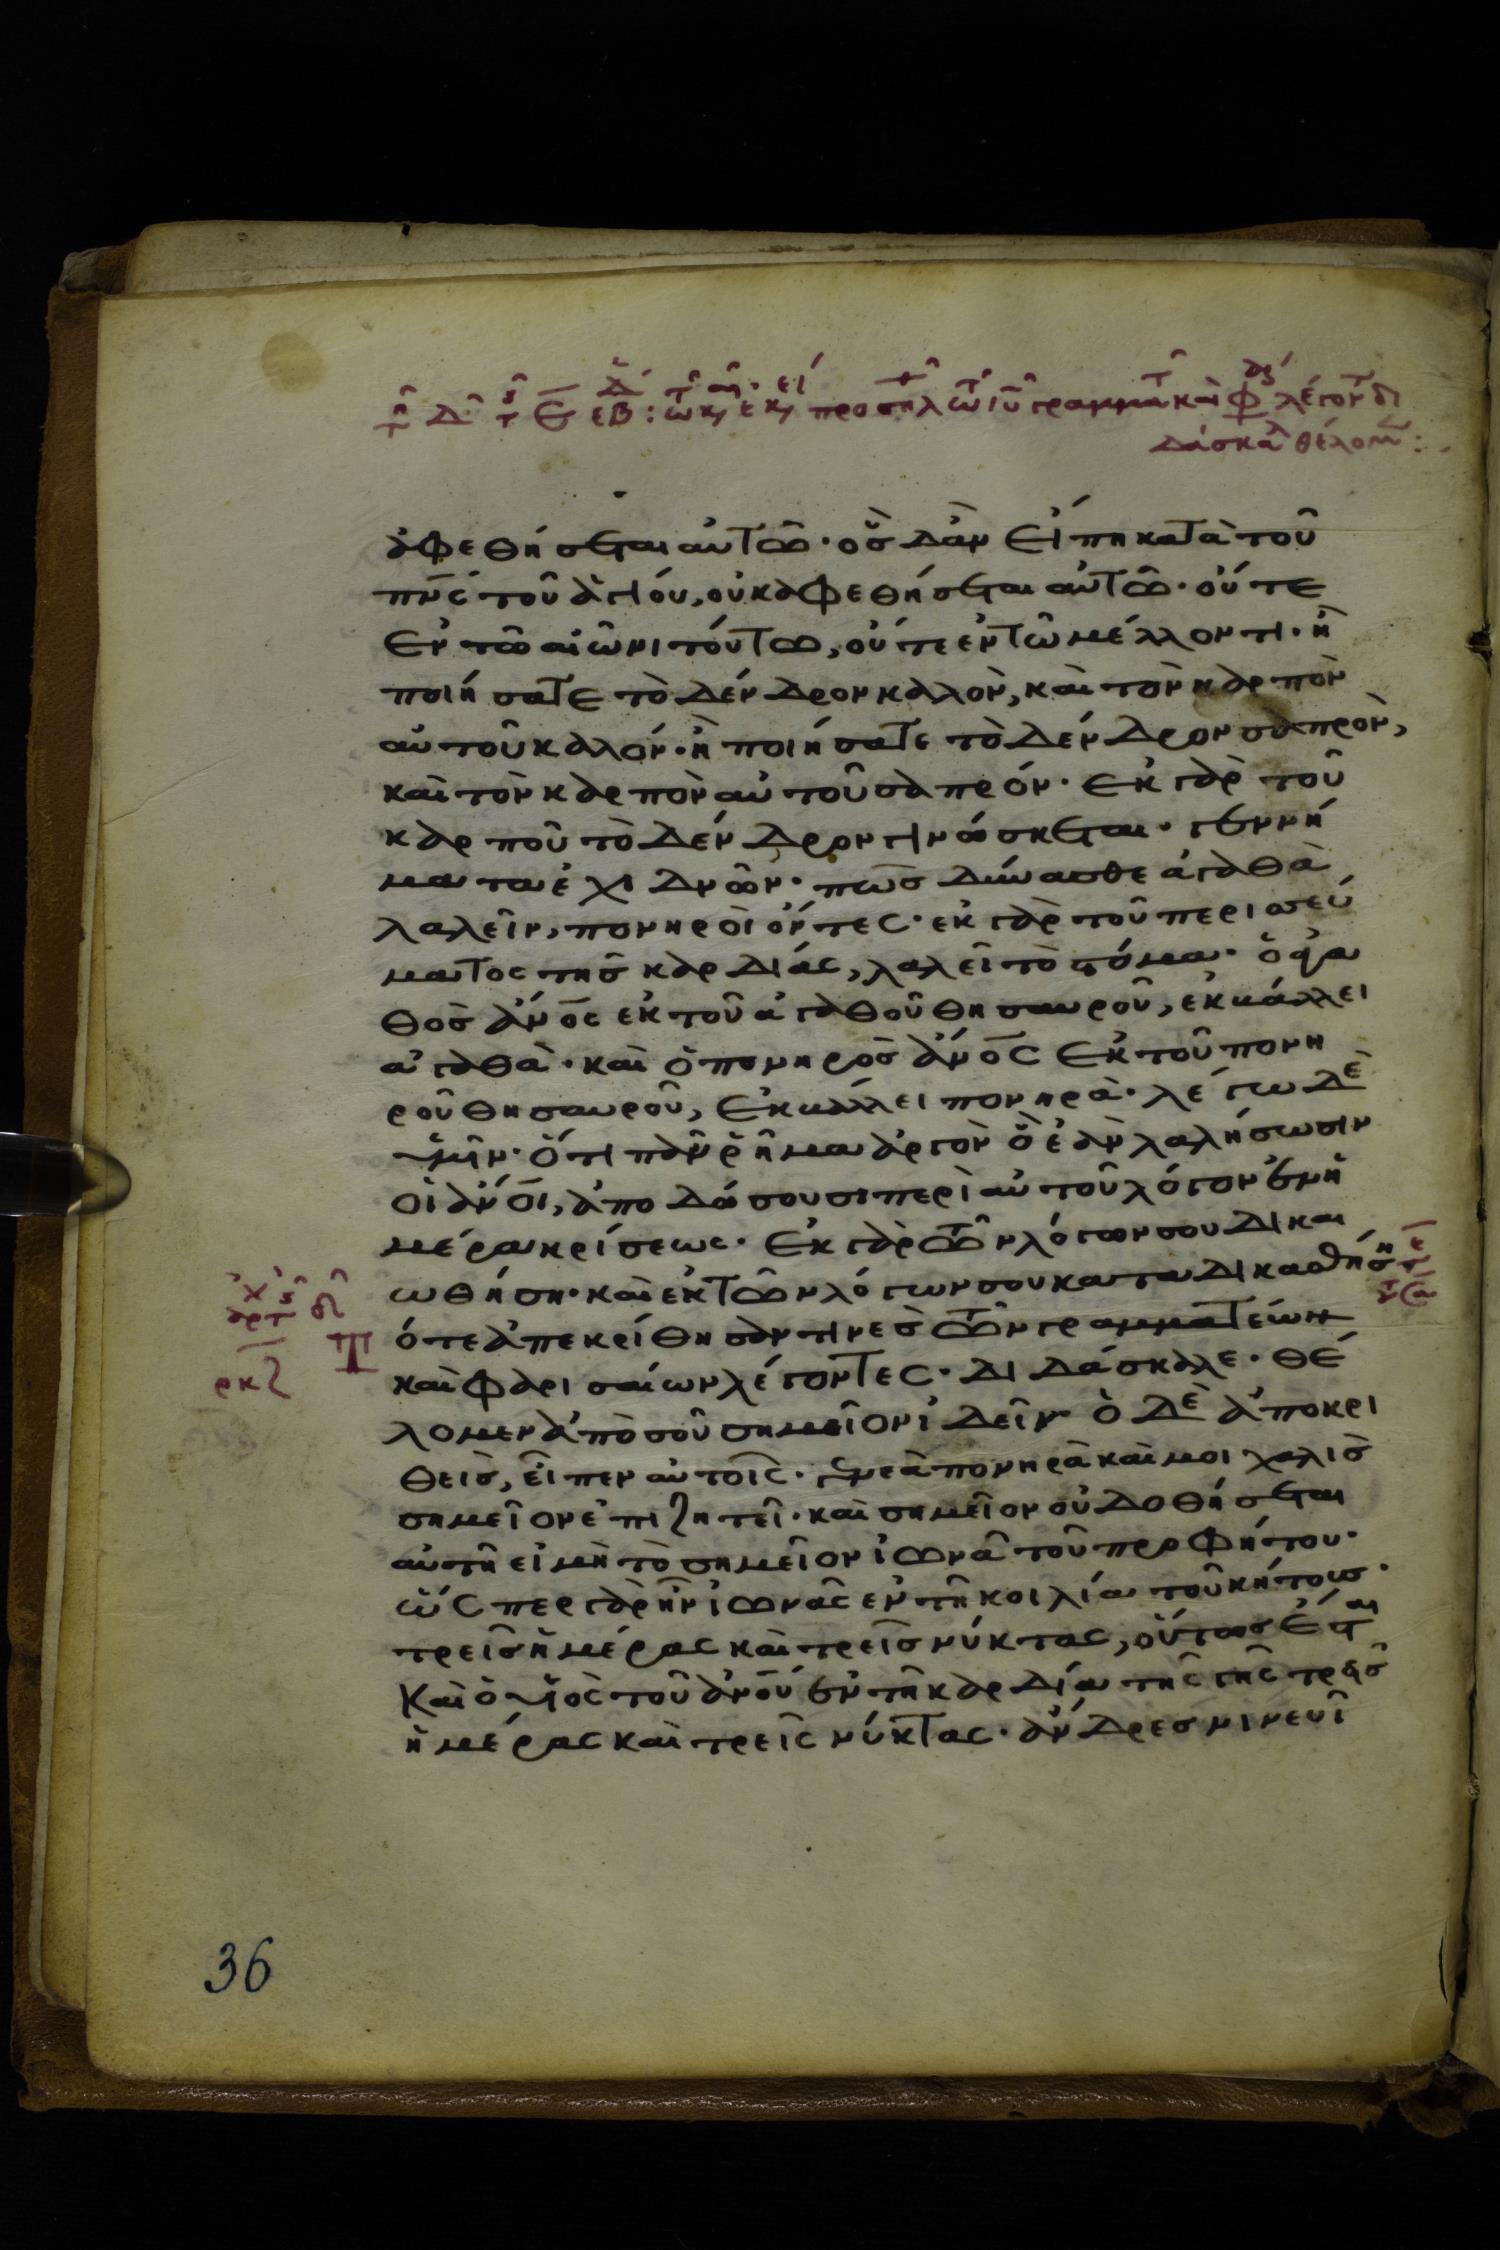 ἀφεθήσεται αὐτῶ· ὃς δἂν εἴπη κατὰ τοῦ
πνς τοῦ ἁγίου, οὐκ ἀφεθήσεται αὐτῶ· οὔτε
ἐν τῶ αἰῶνι τούτω, οὔτε ἐν τῶ μέλλοντι· ἢ
ποιήσατε τὸ δένδρον καλὸν, καὶ τὸν καρπὸν
αὐτοῦ καλόν· ἢ ποιήσατε τὸ δένδρον σαπρὸν,
καὶ τὸν καρπὸν αὐτοῦ σαπρόν· ἐκ γὰρ τοῦ
καρποῦ τὸ δένδρον γινώσκεται· γεννή
ματα ἐχιδνῶν· πῶς δύνασθε ἀγαθὰ
λαλεῖν, πονηροὶ ὄντες· ἐκ γὰρ τοῦ περισσεύ
ματος τῆς καρδίας, λαλεῖ τὸ στόμα· ὁ ἀγα
θὸς ἄνος ἐκ τοῦ ἀγαθοῦ θησαυροῦ, ἐκβάλλει
ἀγαθὰ· καὶ ὁ πονηρὸς ἄνος ἐκ τοῦ πονη
ροῦ θησαυροῦ, ἐκβάλλει πονηρὰ· λέγω δὲ
ὑμῖν· ὅτι πᾶν ῥῆμα ἀργὸν ὃ ἐὰν λαλήσωσιν
οἱ ἄνοι, ἀποδώσουσι περὶ αὐτοῦ λόγον ἐν ἡ
μέρα κρίσεως· ἐκ γὰρ τῶν λόγων σου δικαι
ωθήση· καὶ ἐκ τῶν λόγων σου καταδικασθήση
ότε ἀπεκρίθησάν τινες τῶν γραμματέων
καὶ φαρισαίων λέγοντες· διδάσκαλε· θέ
λομεν ἀπὸ σοῦ σημεῖον ἰδεῖν· ὁ δὲ ἀποκρι
θεὶς, εἶπεν αὐτοῖς· γενεὰ πονηρὰ καὶ μοιχαλὶς
σημεῖον ἐπιζητεῖ· καὶ σημεῖον οὐ δοθήσεται
αὐτῆ εἰ μὴ τὸ σημεῖον ἰωνᾶ τοῦ προφήτου·
ὥσπερ γὰρ ἦν ἰωνᾶς ἐν τῆ κοιλία τοῦ κήτους·
τρεῖς ἡμέρας καὶ τρεῖς νύκτας, οὕτως ἔσται
καὶ ὁ υἱὸς τοῦ ἀνου ἐν τῆ καρδία τῆς γῆς τρεῖς
ἡμέρας καὶ τρεῖς νύκτας· ἄνδρες νινευῖ
ρκζ
36